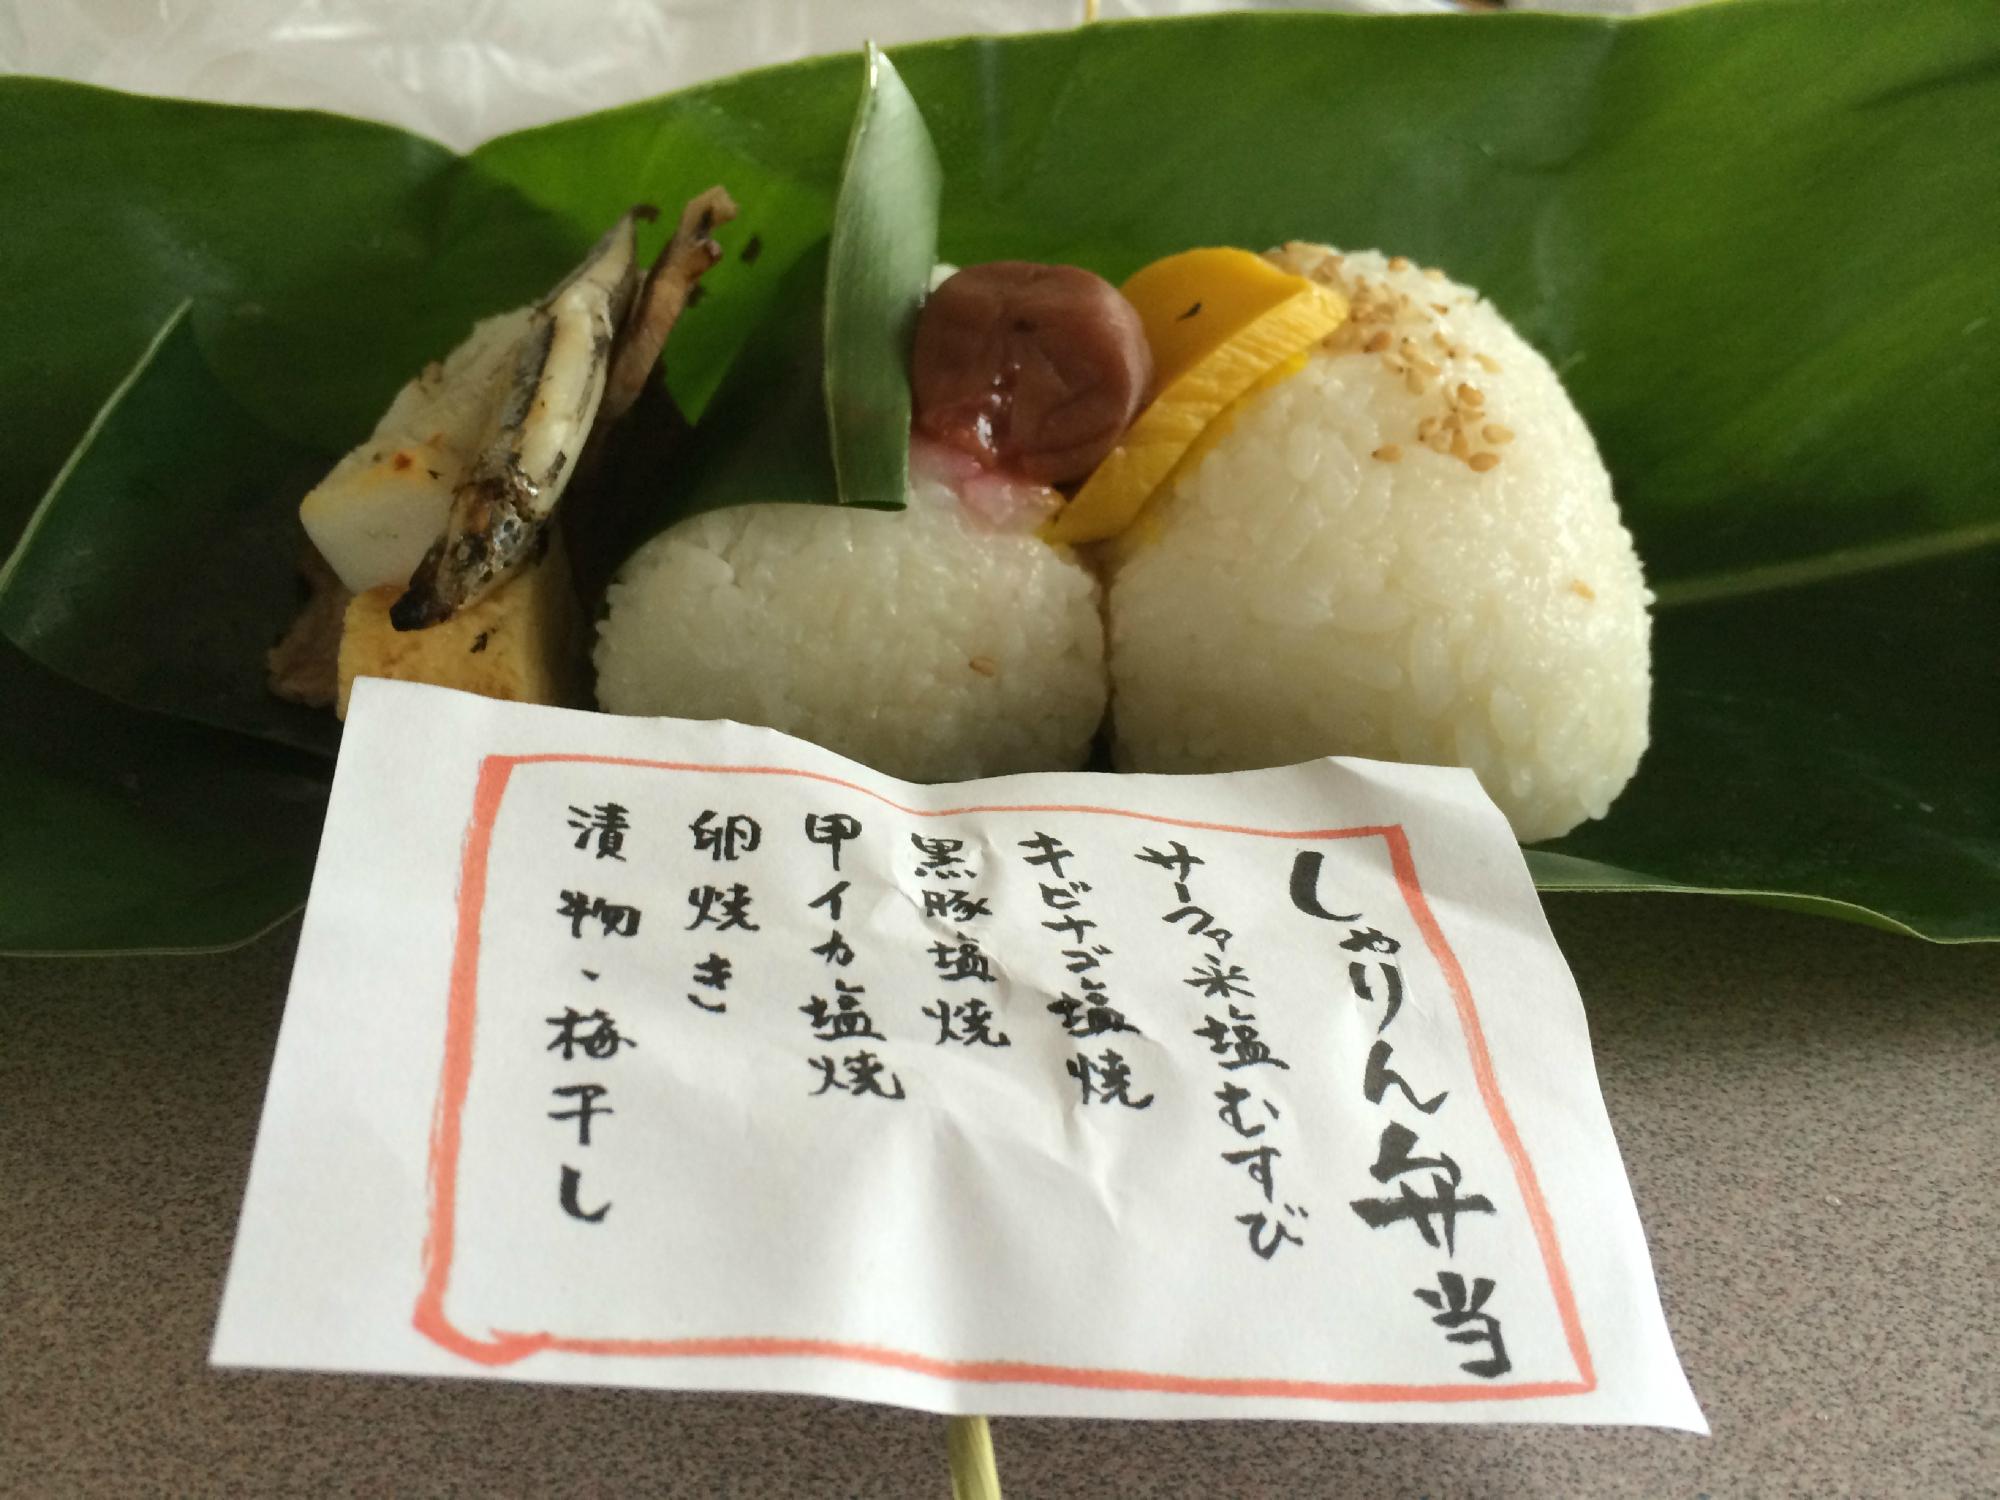 しゃりん弁当
サーファ米塩むすび
キビナゴ塩焼
黒豚塩焼
甲イカ塩焼
卵焼き
漬物、梅干し